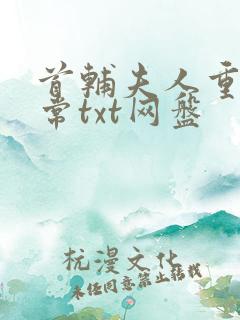 首辅夫人重
常txt网盘
杭漫文化
未经同意禁止转载